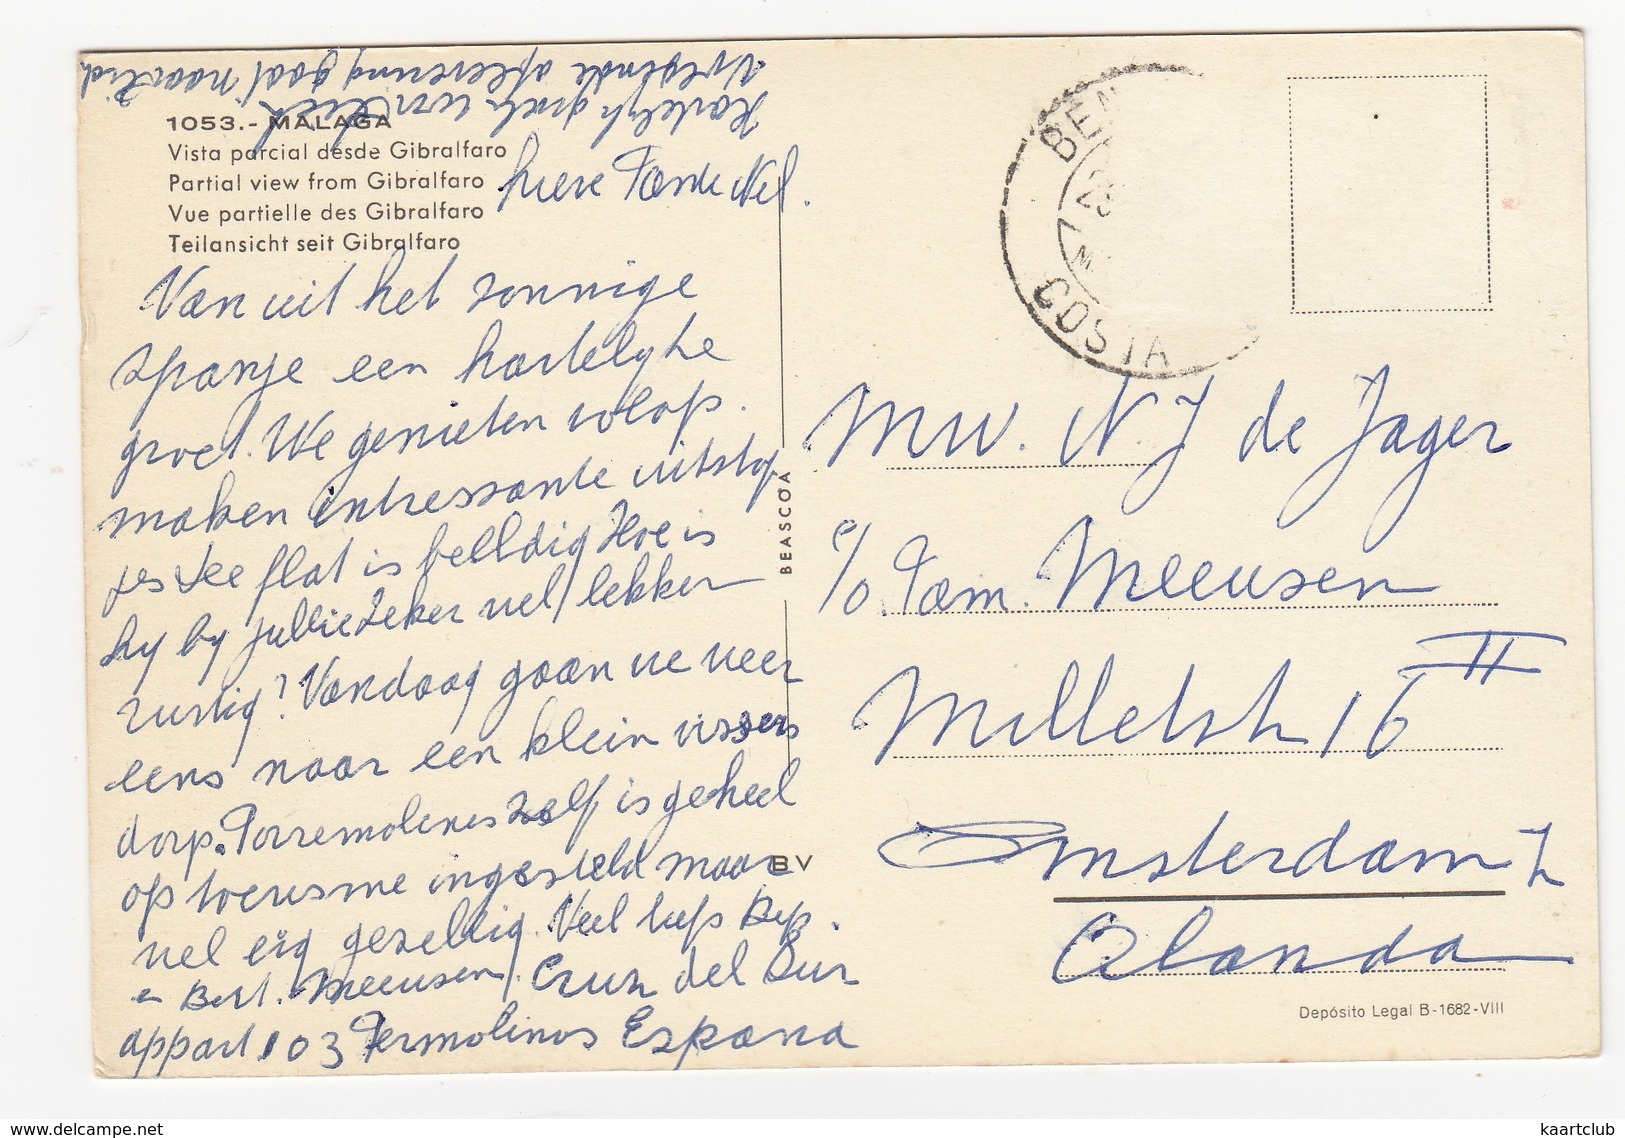 1053.- MALAGA
Vista parcial desde Gibralfaro
Partial view from Gibralfaro
Vue partielle des Gibralfaro
Teilansicht seit Gibralfaro
lieve Tante Nel.
Van uit het zonnige
Spanje een hartelyke
groet. We genieten volop.
maken intressante uitstap
jes de flat is Hoe is
hy by jullie zeker wel lekker
rustig? Vandaag gaan we weer
eens naar een klein vissers
dorp. Torremolenes zelf is geheel
op toerisme ingesteld maar
wel erg gezellig. Veel liefs Bep.
en Bert. Meeusen. Cruz del Sur
appart 103 Termolinos Espana
Hartelijk groeten van
Volgende aflevering gaat naar
BEASCOA
BV
BEN
25
M
COSTA
MW. N J de Jager
c/o. Fam. Meeusen
Milletstr 16 II
Amsterdam Z
Olanda
Depósito Legal B-1682-VIII
www.delcampe.net
kaartclub